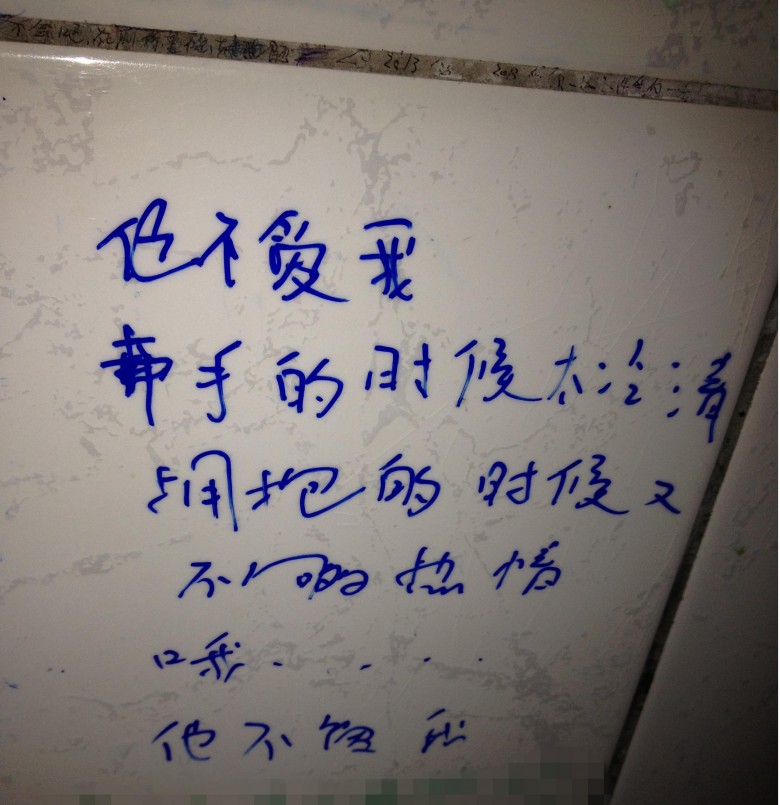 2013 2013
他不爱我
牵手的时候太冷清
拥抱的时候又
不够热情
哦. . . . .
他不爱我